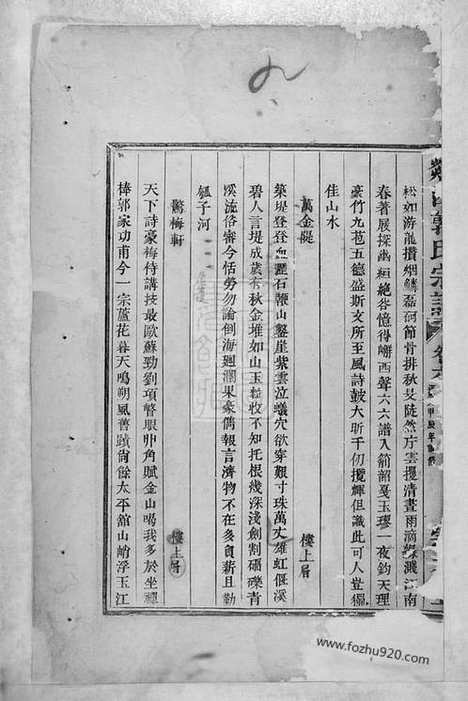 松如游龍攢烟鱗磊砢節骨排秋旻陡然庁雲攪清晝雨滴樑溅江南
春著屐探幽絕谷憶得嶰西聲六六譜入箭韶戛玉璆一夜鈞天理
豪竹九苞五德盛斯文所至風詩皷大昕千仞攬輝但識此可人豈獨
佳山水
萬金隄 樓上層
築堤登登血石鞭山鑿崖紫雲泣蟻穴欲穿艱寸珠萬丈雄虹偃溪
碧人言堤成歲有秋金堆如山玉粒收不知托根幾深淺劍割礪礫青
溪流俗審今恬勞勿論倒海廻瀾果豪儔報言濟物不在多負薪且勤
瓠子河
鷩梅軒 樓上層
天下詩豪梅侍講技最歐蘇勁劉項瞥眼丱角賦金山喝我多於坐禪
棒郭家功甫今一宗蘆花暮天鳴朔風舊蹟尙餘太平舘山峭浮玉江
www.fozhu920.com